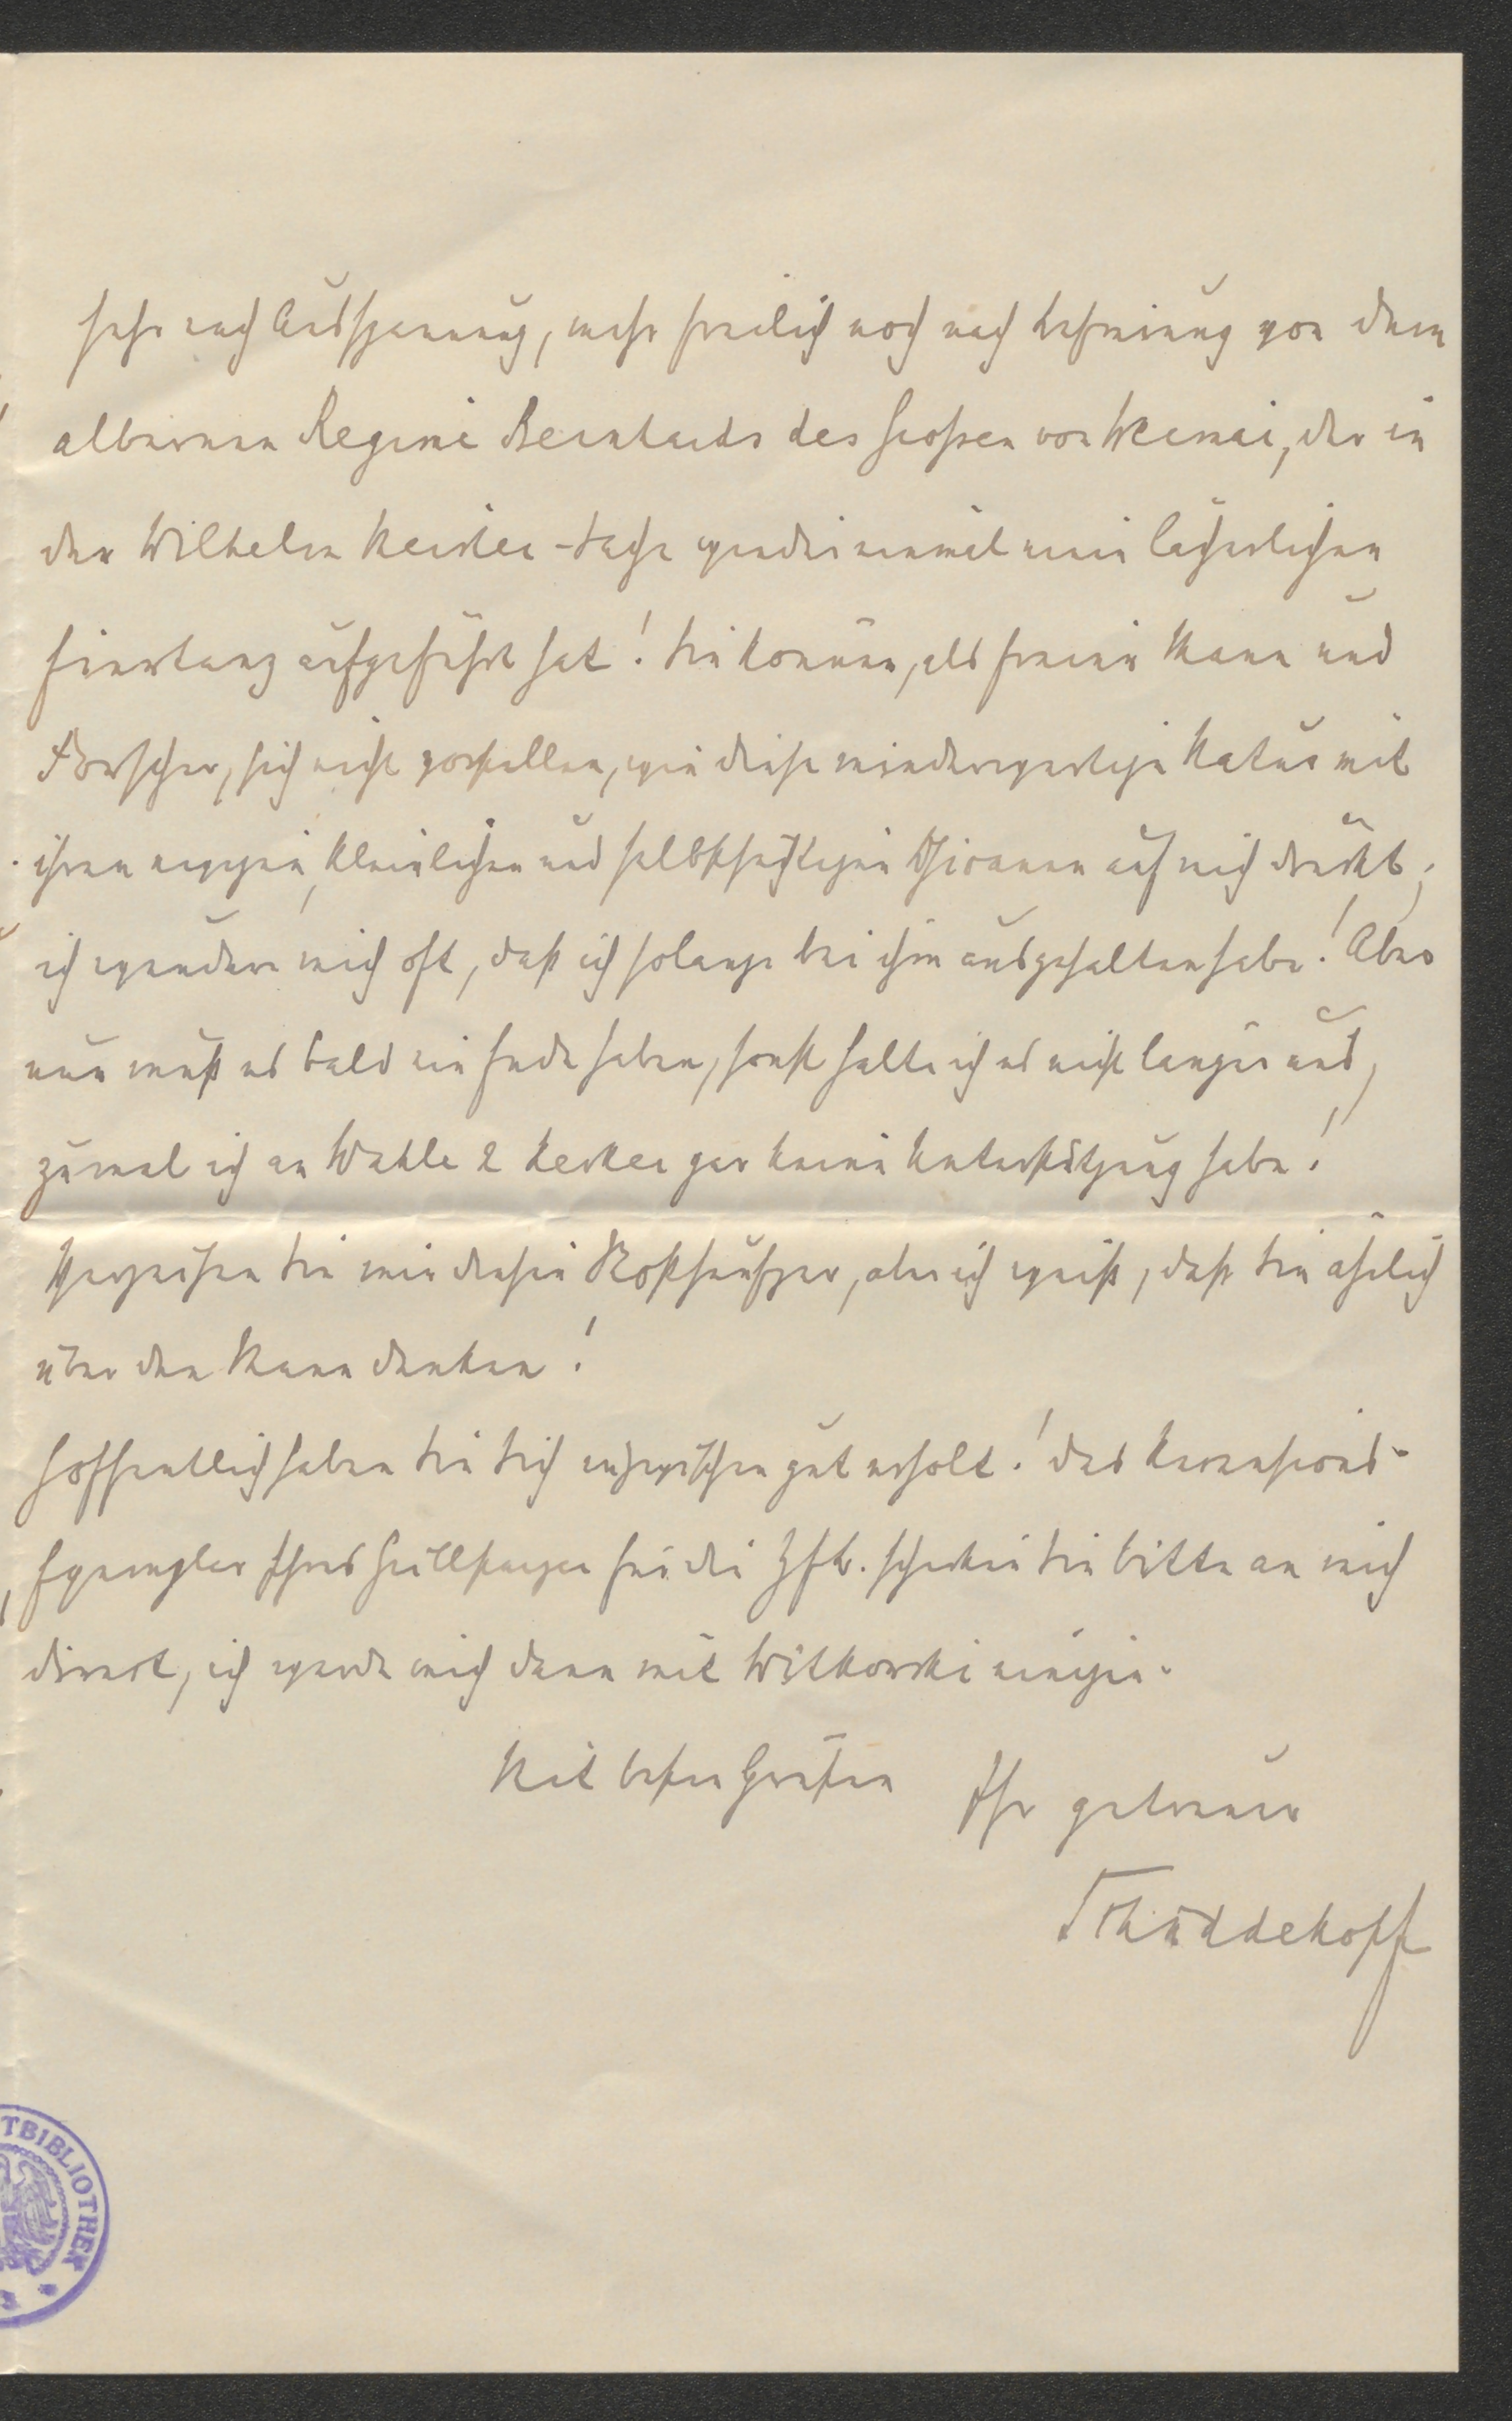 sehr nach Ausspannung, mehr freilich noch nach Befreiung von dem
albernen Regime Bernhards des Großen von Weimar, der in
der Wilhelm Meister-Sache wieder einmal einen lächerlichen
Eiertanz aufgeführt hat! Sie können, als freier Mann und
Forscher, sich nicht vorstellen, wie diese minderwertige Natur mit
ihren ewigen, kleinlichen und selbstsüchtigen Chicanen auf mich drückt;
ich wundere mich oft, daß ich solange bei ihm ausgehalten habe! Aber
nun muß es bald ein Ende haben, sonst halte ich es nicht länger aus,
zumal ich an Wahle & gar keine Unterstützung habe!
Verzeihen Sie mir diesen Stoßseufzer, aber ich weiß, daß Sie ähnlich
über den Mann denken!
Hoffentlich haben Sie Sich inzwischen gut erholt! Das Recensions-
Exemplar Ihres Grillparzer für die ZfB. schicken Sie bitte an mich
direct, ich werde mich dann mit Witkowski einigen.
Mit besten Grüßen Ihr getreuer
Schüddekopf
TBIBLIOTHEK